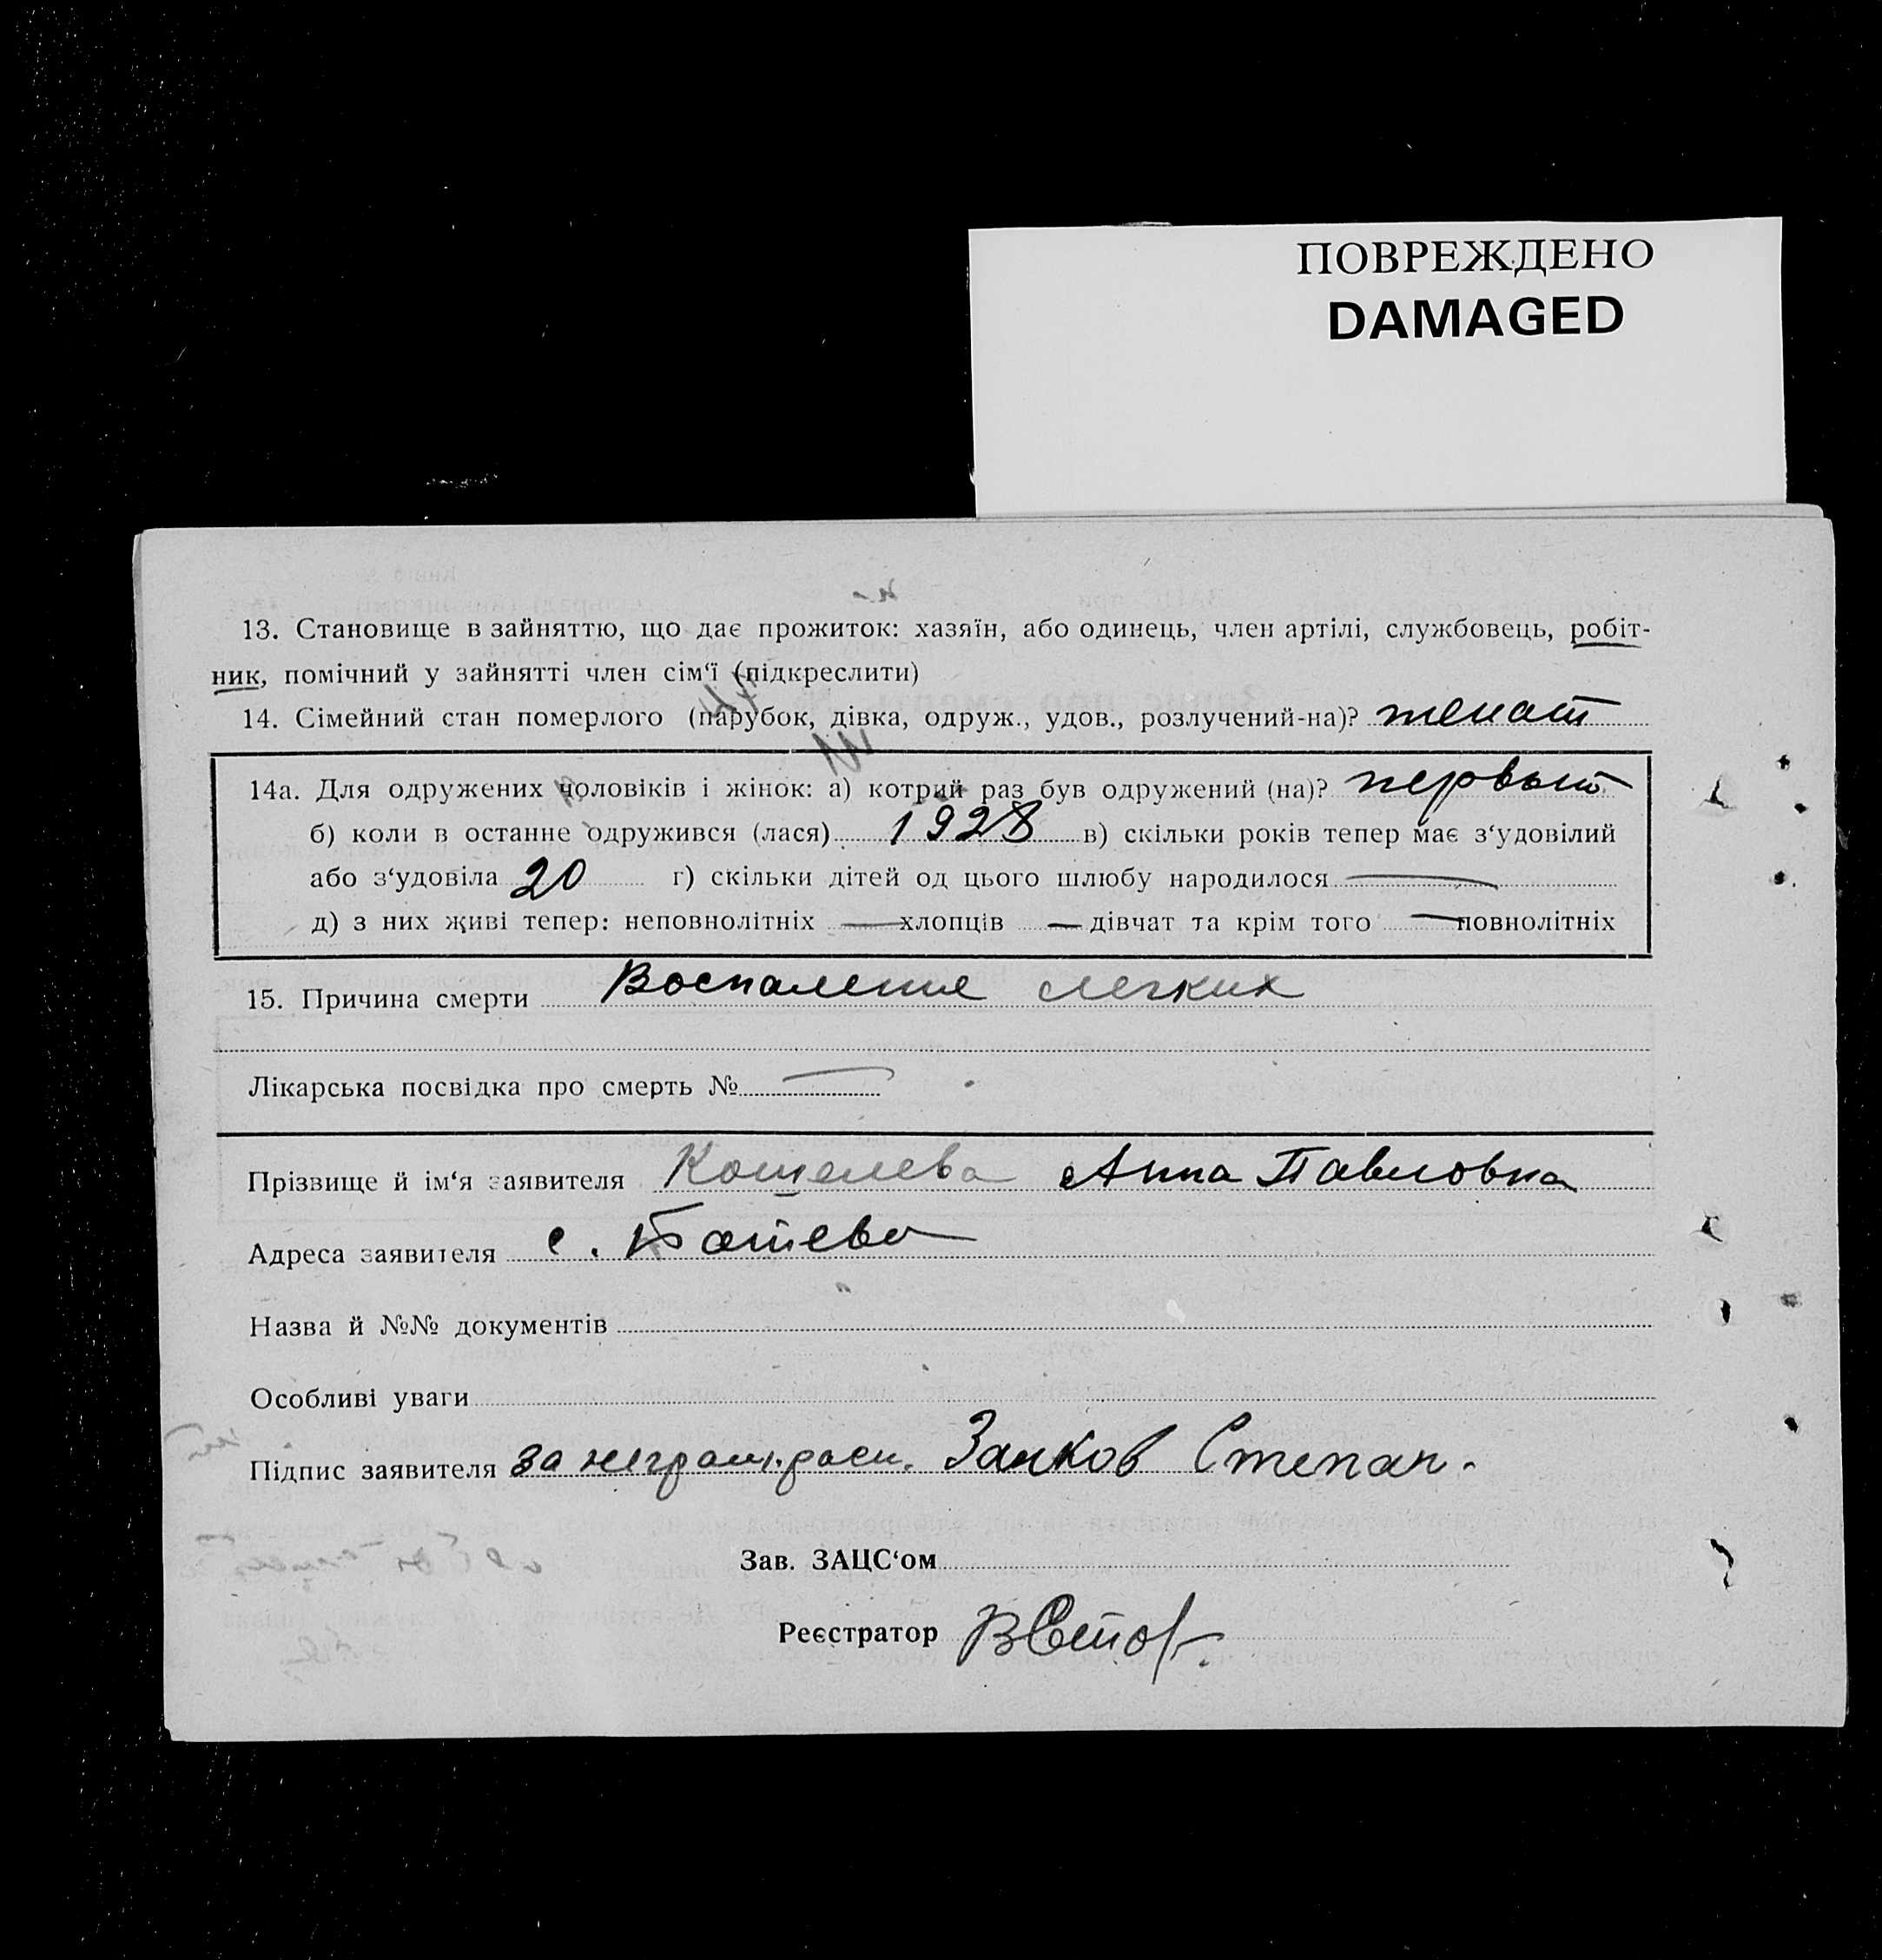 ПОВРЕЖДЕНО
DAMAGED
13. Становище в зайняттю, що дає прожиток: хазяїн, або одинець, член артілі, службовець, робіт-
ник, помічний у зайнятті член сім‘ї (підкреслити)
14. Сімейний стан померлого (парубок, дівка, одруж., удов., розлучений-на)? женат
14а. Для одружених чоловіків і жінок: а) котрий раз був одружений (на)? первый
б) коли в останнє одружився (лася) 1928 в) скільки років тепер має з‘удовілий
або з‘удовіла 20 г) скільки дітей од цього шлюбу народилося —
д) з них живі тепер: неповнолітніх — хлопців — дівчат та крім того — повнолітніх
15. Причина смерти Воспаление легких
Лікарська посвідка про смерть № —
Прізвище й ім‘я заявителя Кошелева Анна Павловна
Адреса заявителя с.
Назва й №№ документів
Особливі уваги
Підпис заявителя за неграм. расп. Занков Степан.
Зав. ЗАЦС‘ом
Реєстратор